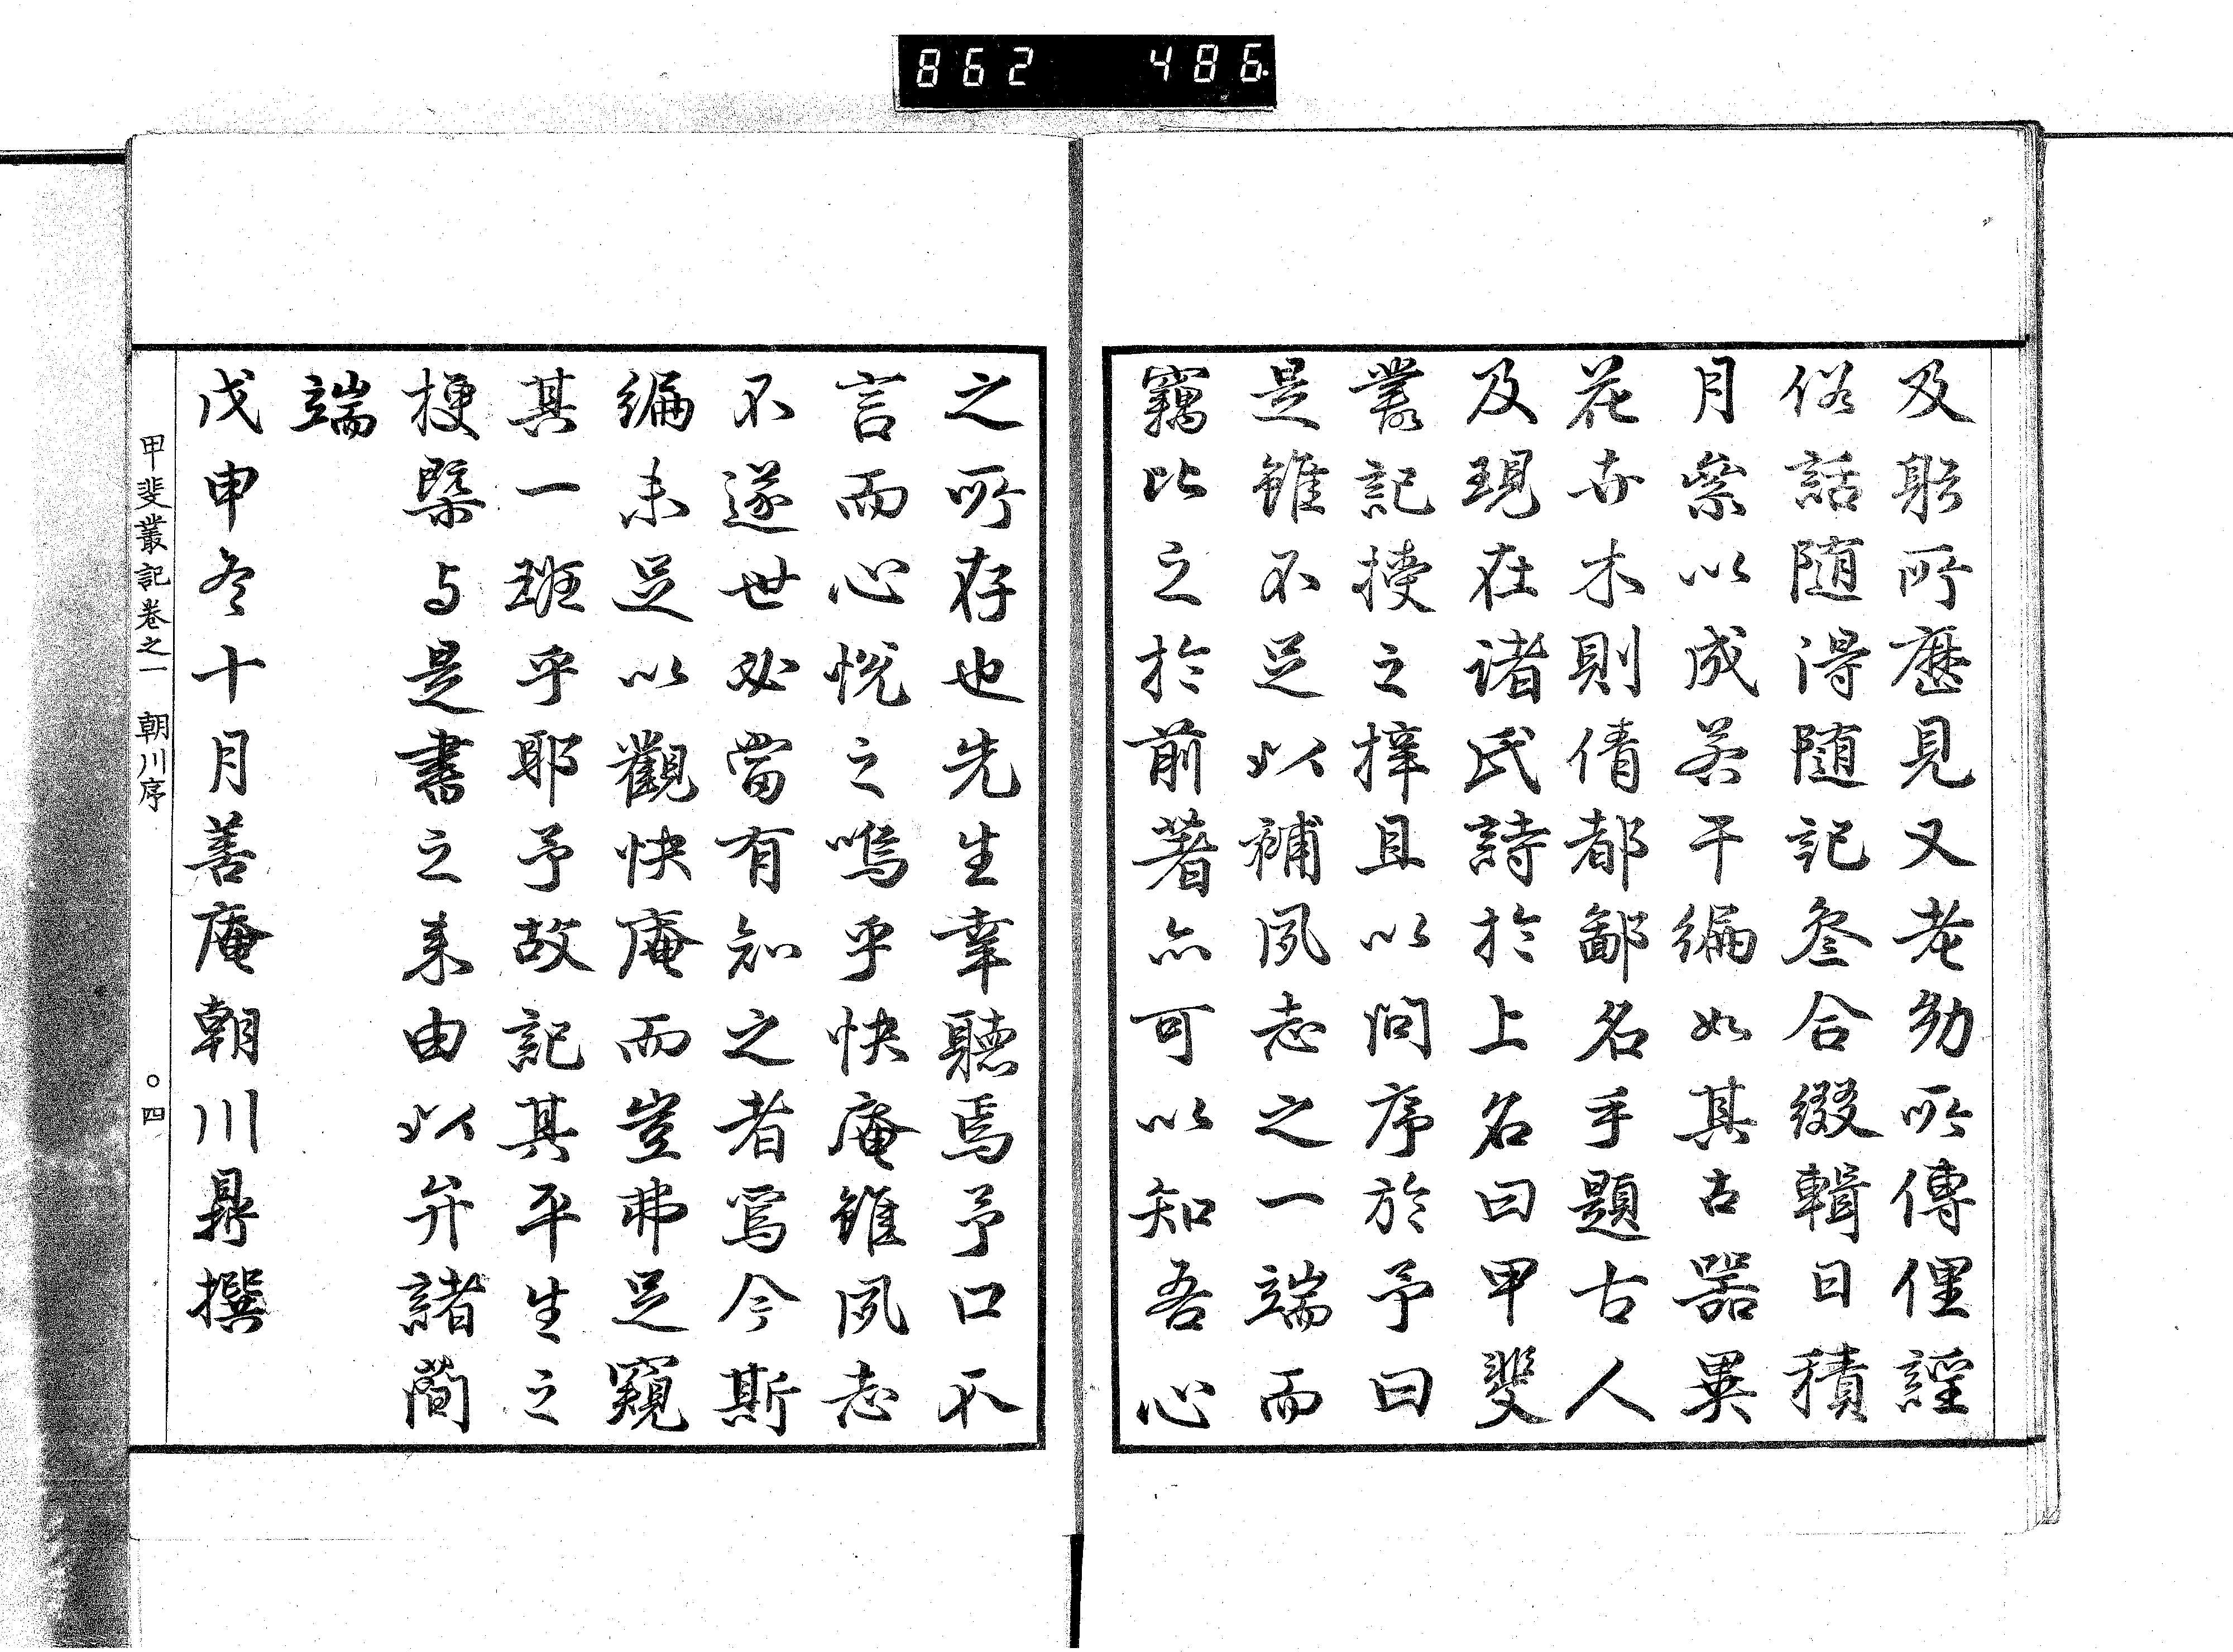 862 486
及躬所歷見又老幼所傳俚謡
俗話随得随記叅合綴輯日積
月絫以成若干編如其古器異
花卉木則倩都鄙名手題古人
及現在诸氏詩於上名曰甲斐
叢記授之梓且以問序於予曰
是雖不足以補夙志之一端而
竊比之於前著亦可以知吾心
之所存也先生幸聽焉予口不
言而心悦之嗚乎快庵雖夙志
不遂世必當有知之者焉今斯
編未足以觀快庵而豈弗足窺
其一班乎耶予故記其平生之
梗槩与是書之来由以弁諸蕳
端
戊申冬十月善庵朝川鼎撰
甲斐叢記卷之一 朝川序 ○四